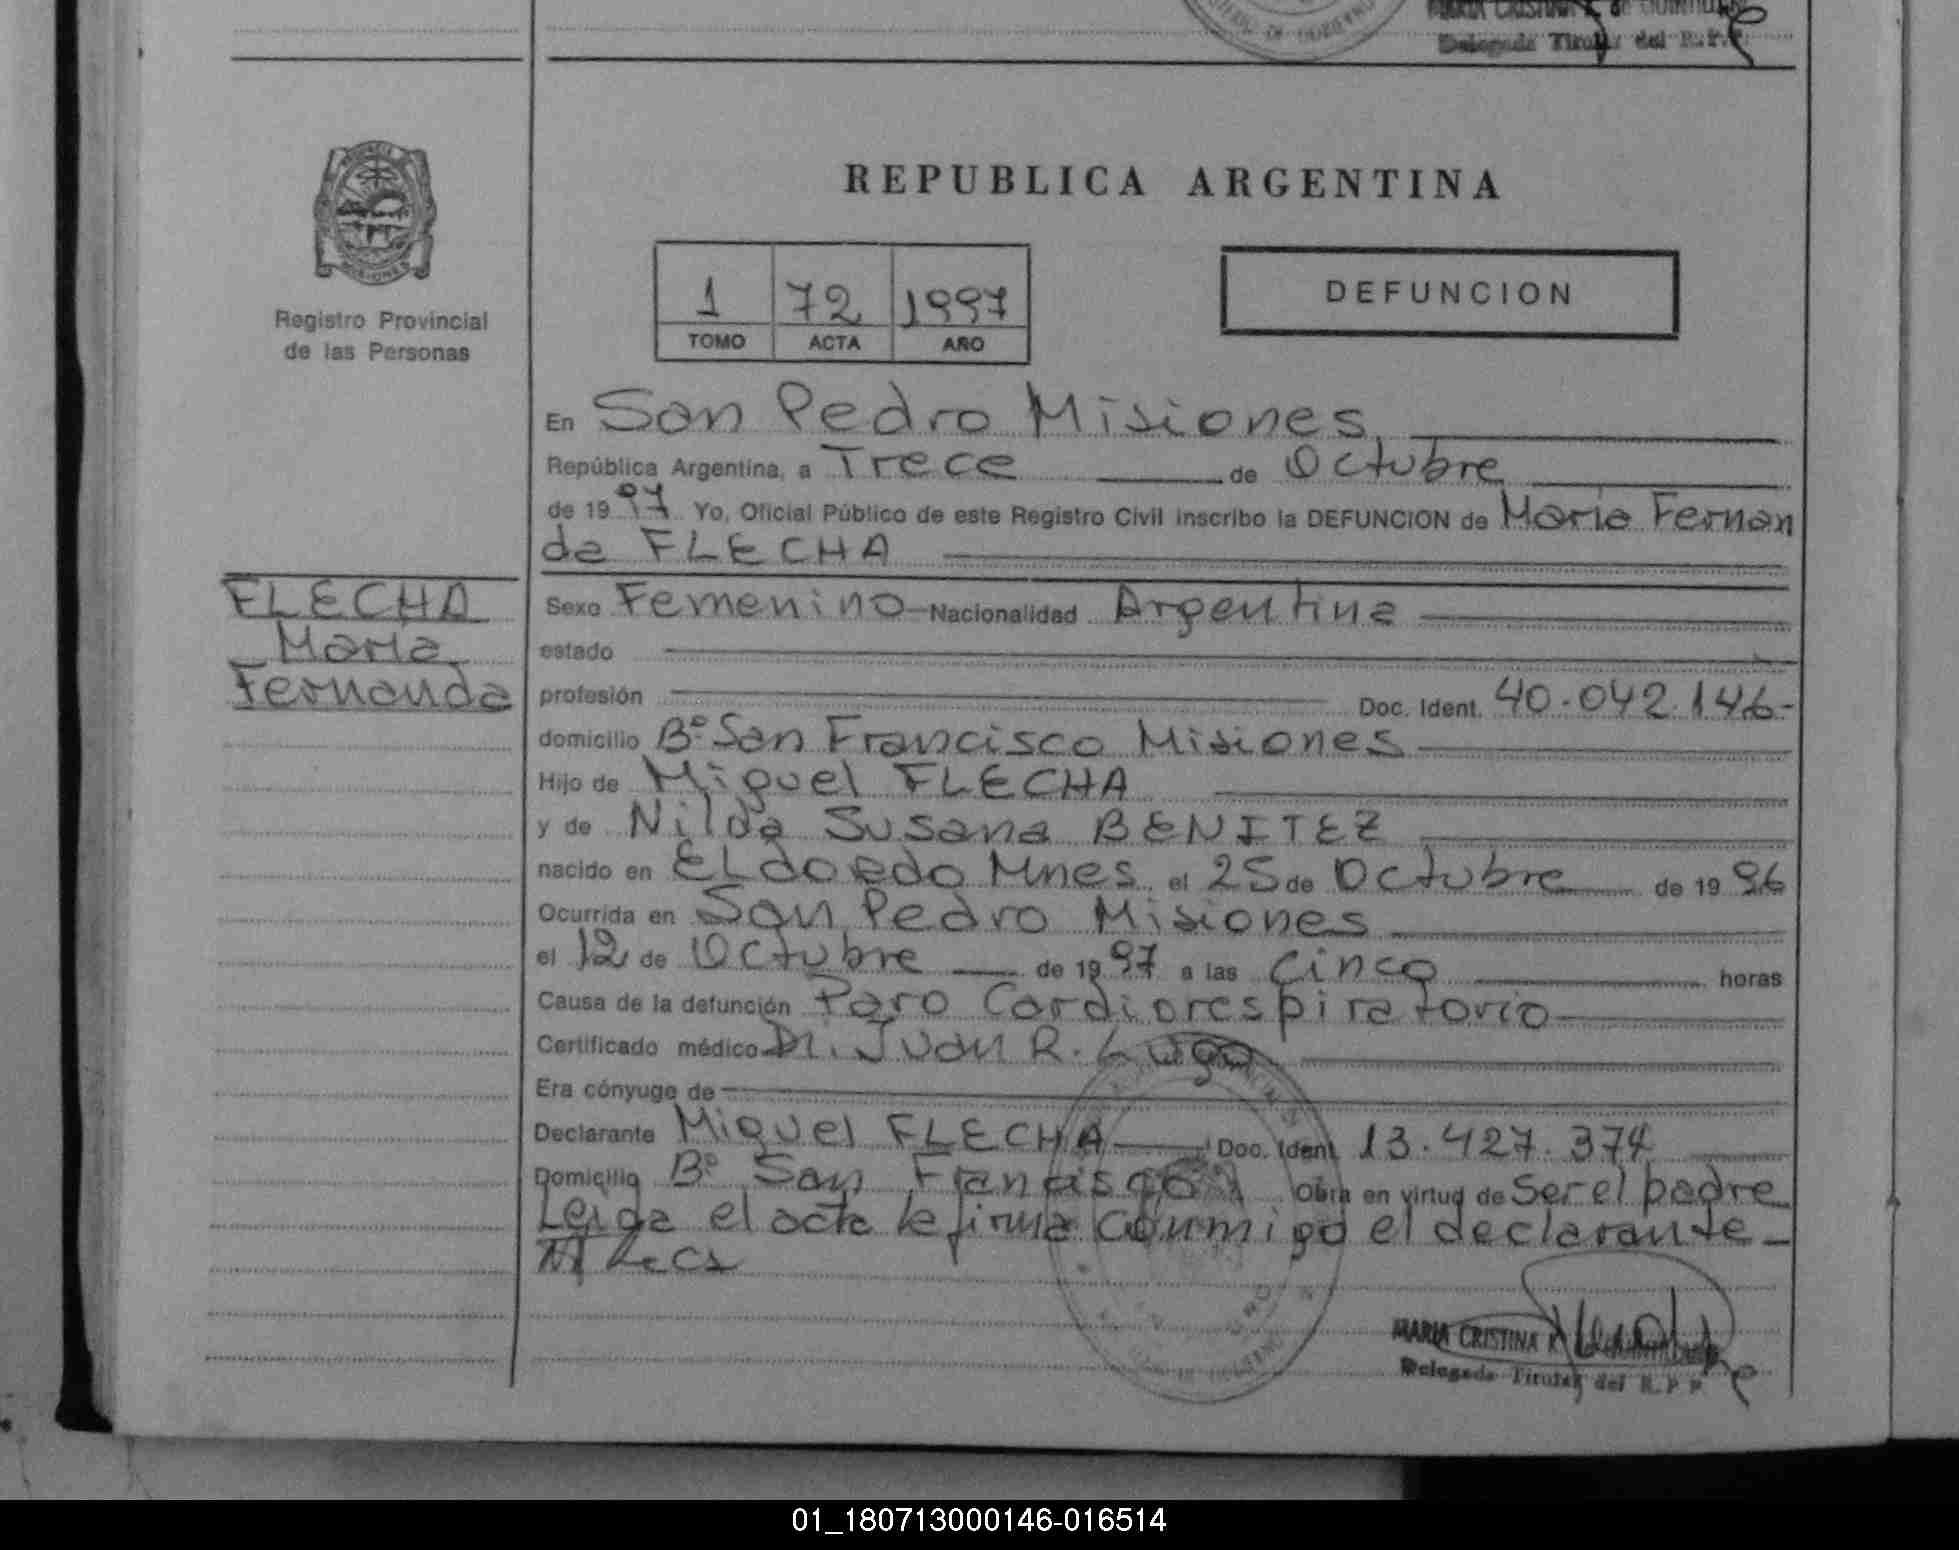 Delegada Titular del R.P.P.
REPUBLICA ARGENTINA
1 72 1997
TOMO ACTA AÑO
DEFUNCION
Registro Provincial
de las Personas
En San Pedro Misiones,
República Argentina, a Trece de Octubre
de 19 97 Yo, Oficial Público de este Registro Civil inscribo la DEFUNCION de Maria Fernan
da FLECHA
FLECHA
Maria
Fernanda
Sexo Femenino Nacionalidad Argentina
estado
profesión Doc. Ident. 40.042.146-
domicilio Bº San Francisco Misiones
Hijo de Miguel FLECHA
y de Nilda Susana BENITEZ
nacido en ELdoredo Mnes el 25 de Octubre de 19 96
Ocurrida en San Pedro Misiones
el 12 de Octubre de 19 97 a las Cinco horas
Causa de la defunción Paro Cardiorespiratorio
Certificado médico Dr. Juan R. Lugo
Era cónyuge de
Declarante Miguel FLECHA Doc. Ident. 13.427.374
Domicilio Bº San Francisco Obra en virtud de Ser el padre
Leida el acta la firma conmigo el declarante
MARIA CRISTINA R.
Delegada Titular del R.P.P.
01_180713000146-016514